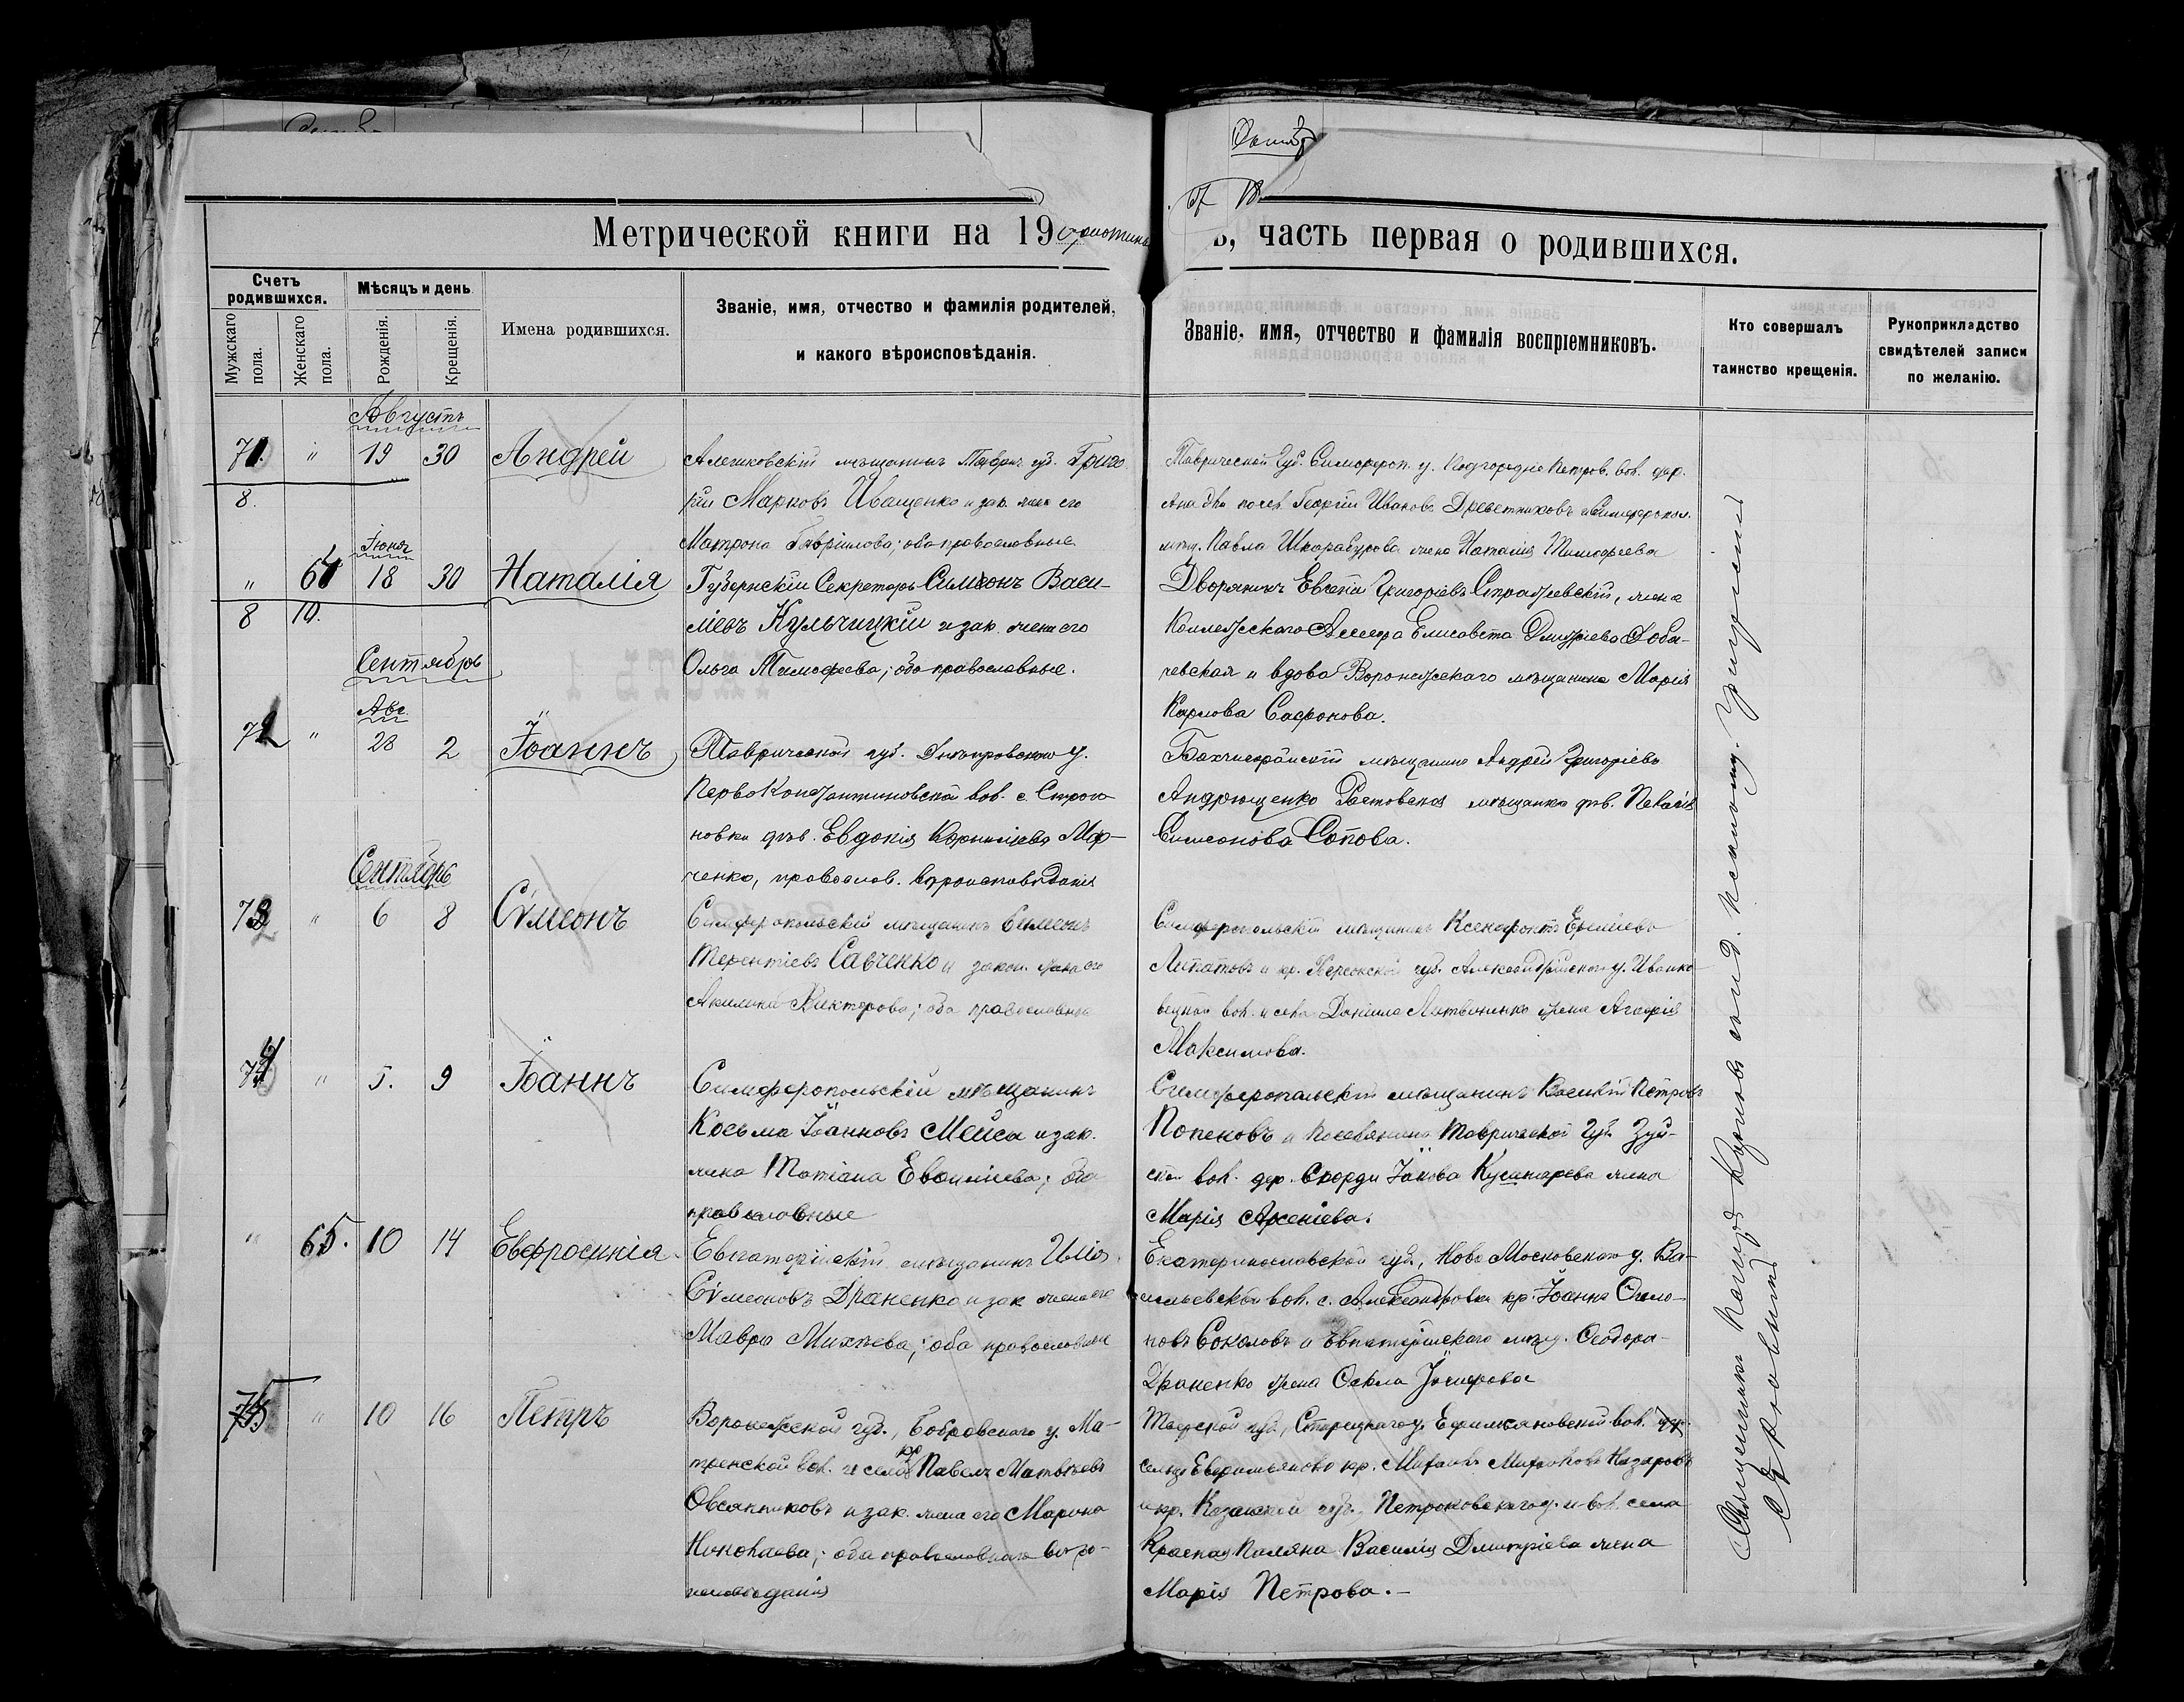 Метрической книги на 19
ъ, часть первая о родившихся.
Счетъ родившихся.
Мужскаго пола.
Женскаго пола.
Мѣсяцъ и день
Рожденія.
Крещенія.
Имена родившихся.
Званіе, имя, отчество и фамилія родителей,
и какого вѣроисповѣданія.
Званіе, имя, отчество и фамилія воспріемниковъ.
Кто совершалъ
таинство крещенія.
Рукоприкладство
свидѣтелей записи
по желанію.
Августъ
71. " 19 30 Андрей
8.
Алешковскій мѣщанинъ Таврич. губ. Григо
рій Марковъ Иващенко и зак. жена его
Матрона Гавріилова; оба православные
Таврической Губ. Симфероп. у. Подгородне Петров. вол. дер.
посел. Георгій Ивановъ Древетняковъ и Симфероп.
мѣщ. Павла Шкарабурова жена Наталія Тимофеева
Іюня
" 61 18 30 Наталія
8 10.
Губернскій Секретарь Симеонъ Васи-
ліевъ Кульчицкій и зак. жена его
Ольга Тимофеева; оба православные.
Дворянинъ Евгеній Григоріевъ Стражевскій, жена
Коллежскаго Ассесора Елисавета Дмитріева Лоба-
чевская и вдова Воронежскаго мѣщанина Марія
Карпова Сафонова.
Сентябрь
Авг.
72 " 28 2 Іоаннъ
Таврической губ. Днѣпровскаго у.
Перво Константиновской вол. с. Строга
новки дѣв. Евдокія Корнилиева Мар-
ченко, православ. вѣроисповѣданія
Бахчисарайскій мѣщанинъ Андрей Григоріевъ
Андрющенко Ростовская мѣщанка дѣв. Пелагія
Симеонова Сопова.
Сентябрь
73 " 6 8 Сѵмеонъ
Симферопольскій мѣщанинъ Симеонъ
Терентіевъ Савченко и закон. жена его
Акилина Викторова; оба православные
Симферопольскій мѣщанинъ Ксенофонтъ Еремѣевъ
Липатовъ и кр. Херсонской губ. Александрійскаго у. Иванко-
вецкой вол. и села Даніила Литвиненко жена Агафія
Максимова.
74 " 5. 9 Іоаннъ
Симферопольскій мѣщанинъ
Косьма Іоанновъ Мейса и зак.
жена Татіана Евфиміева; оба
православные
Симферопольскій мѣщанинъ Василій Петровъ
Попековъ и поселянина Таврической Губ. Зуй-
ской вол. дер. Спорди Іакова Кушнарева жена
Марія Арсеніева.
" 65. 10 14 Евфросинія
Евпаторійскій мѣщанинъ Илія
Сѵмеоновъ Драненко и зак. жена его
Мавра Михѣева; оба православные
Екатеринославской губ., Ново Московскаго у. Ва-
сильевской вол. с. Александровки кр. Іоаннъ Симо-
новъ Соколовъ и Евпаторійскаго мѣщ. Ѳеодора
Драненко жена Ѳекла
75 " 10 16 Петръ
Воронежской губ., Бобровскаго у. Ма-
тренской вол. и села кр. Павелъ Матвѣевъ
Овсянниковъ и зак. жена его Марина
Николаева; оба православнаго вѣро-
исповѣданія
Тверской губ., Старицкаго у. Ефимьяновской вол.
сельцо Ефимьяново кр. Михаилъ Михайловъ Назаровъ
и кр. Казанской губ., Петроковскаго у. и вол. села
Красная Поляна Василія Дмитріева жена
Марія Петрова.—
Священникъ